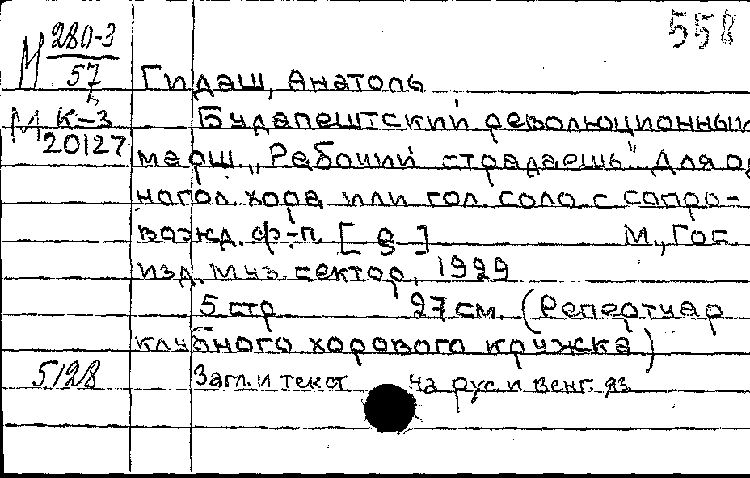 558
М 280-3
57
Гидаш, Анатоль
М К-3
20127
Будапештский революционный
марш „Рабочий страдаешь" для од
ногол. хора или гол. соло с сопро-
вожд. ф.-п. [g] М., Гос.
изд. муз. сектор, 1929
5 стр 27 см. (Репертуар
клубного хорового кружка)
5128 Загл. и текст на рус. и венг. яз.